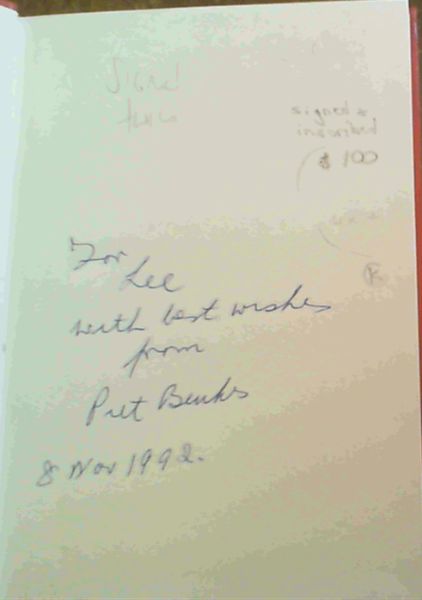 Signed
signed &
inscribed
$ 100
For
Lee
with best wishes
from
Piet Beukes
8 Nov 1992.
R